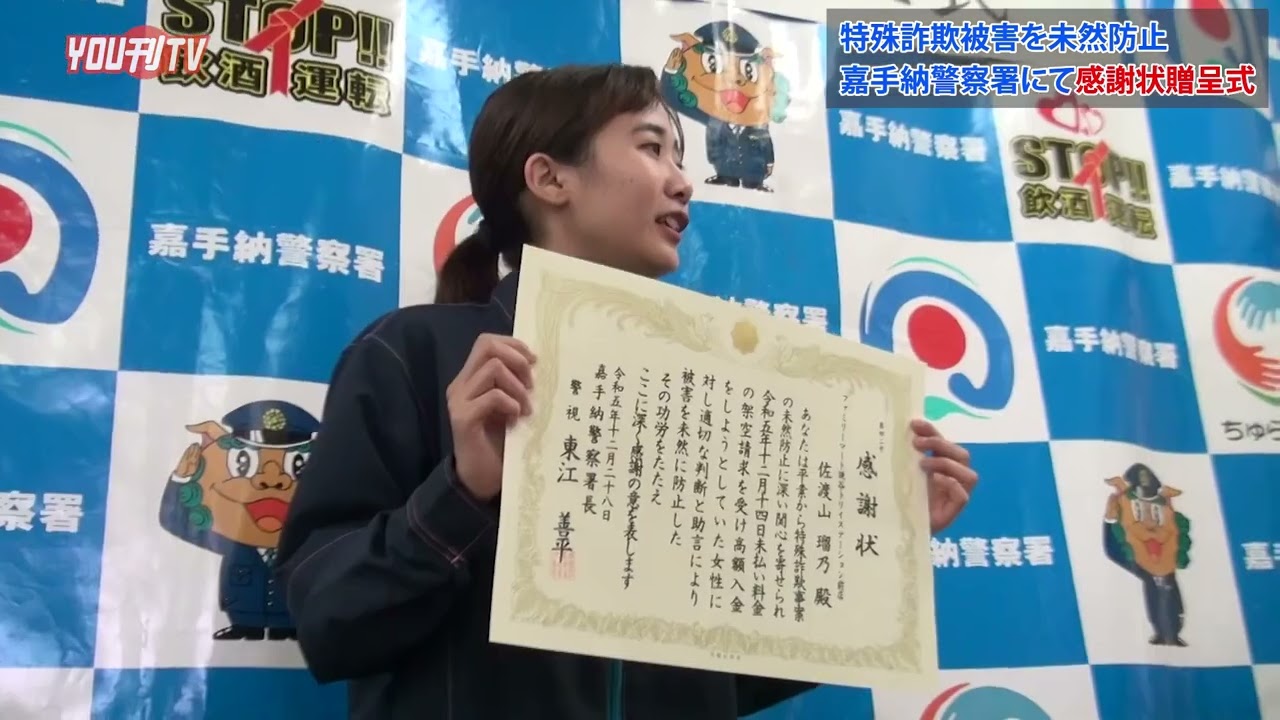 YOU刊TV
特殊詐欺被害を未然防止
嘉手納警察署にて感謝状贈呈式
STOP!!
飲酒運転
嘉手納警察署
嘉手納警察署
STOP!!
飲酒運転
嘉手納警察署
嘉手納警察署
嘉手納警察署
ちゅら
嘉手納警察署
感謝状
佐渡山 瑠乃 殿
あなたは平素から特殊詐欺事案
の未然防止に深い関心を寄せられ
令和五年十二月十四日未払い料金
の架空請求を受け高額入金
をしようとしていた女性に
対し適切な判断と助言により
被害を未然に防止した
その功労をたたえ
ここに深く感謝の意を表します
令和五年十二月二十八日
嘉手納警察署長
警視 東江 善平